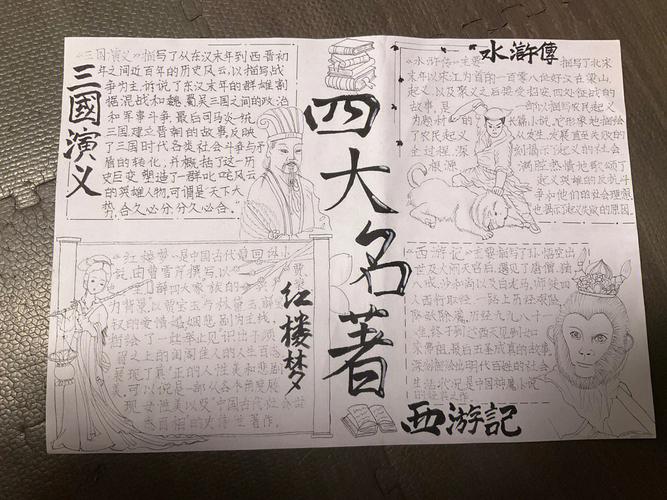 四大名著
三國演义
"三国演义"描写了从东汉末年到西晋初
年之间近百年的历史风云,以描写战
争为主,诉说了东汉末年的群雄割
据混战和魏蜀吴三国之间的政治
和军事斗争,最后司马炎一统
三国,建立晋朝的故事,反映
了三国时代各类社会斗争与矛
盾的转化,并概括了这一历
史巨变,塑造了一群叱咤风云
的英雄人物,可谓是天下大
势,合久必分,分久必合。"
水滸傳
"水浒传"主要描写了北宋
末年以宋江为首的一百零八位好汉在梁山
起义,以及聚义之后接受招安,四处征战的
故事,是一部以描写农民起义
为题材的长篇小说,它形象地描绘
了农民起义从发生,发展直至失败的
全过程,深刻揭示了起义的社会
根源,满腔热情地歌颂了
起义英雄的反抗斗
争和他们的社会理想,
也揭示了起义失败的原因。
红楼梦
"红楼梦"是中国古代章回体小
说,由曹雪芹撰写,以
力背景,以贾宝玉与林黛玉,薛宝
钗的爱情婚姻悲剧为主线,
描绘了一些举止见识出于须
眉之上的闺阁佳人的人生百态
展现了真正的人性美和悲剧
美,可以说是一部从各个角度展
现女性美以及中国古代社会世
态百相的史诗性著作。
西游記
"西游记"主要描写了孙悟空出
世及大闹天宫后,遇见了唐僧,猪八
戒,沙和尚以及白龙马,师徒四
人西行取经,一路上历经艰险,
降妖除魔,历经九九八十
一难,终于到达西天见到如
来佛祖,最后五圣成真的故事,
深刻描绘出明代百姓的社会
生活状况,是中国神魔小说